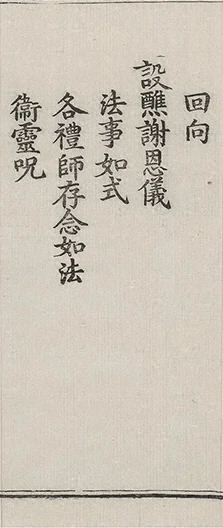 回向
設醮謝恩儀
法事如式
各禮師存念如法
衞靈呪